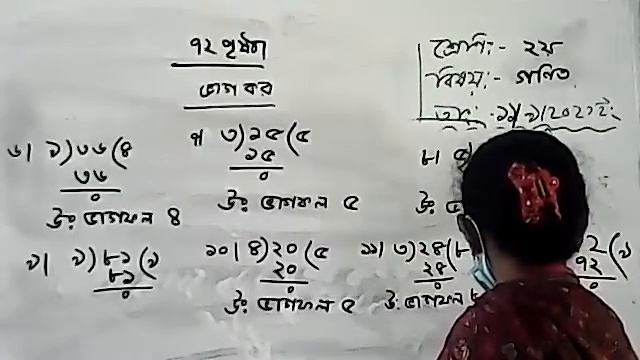 ৭২ পৃষ্ঠা
ভাগ কর
শ্রেণি:- ২য়
বিষয়:- গণিত
৬| ৯)৩৬(৪
৩৬
০
উঃ ভাগফল ৪
৭| ৩)১৫(৫
১৫
০
উঃ ভাগফল ৫
৮|
উঃ
৯| ৯)৮১(৯
৮১
০
১০| ৪)২০(৫
২০
০
উঃ ভাগফল ৫
১১| ৩)২৪(৮
২৪
০
উঃ ভাগফল
২(৯
৭২
০